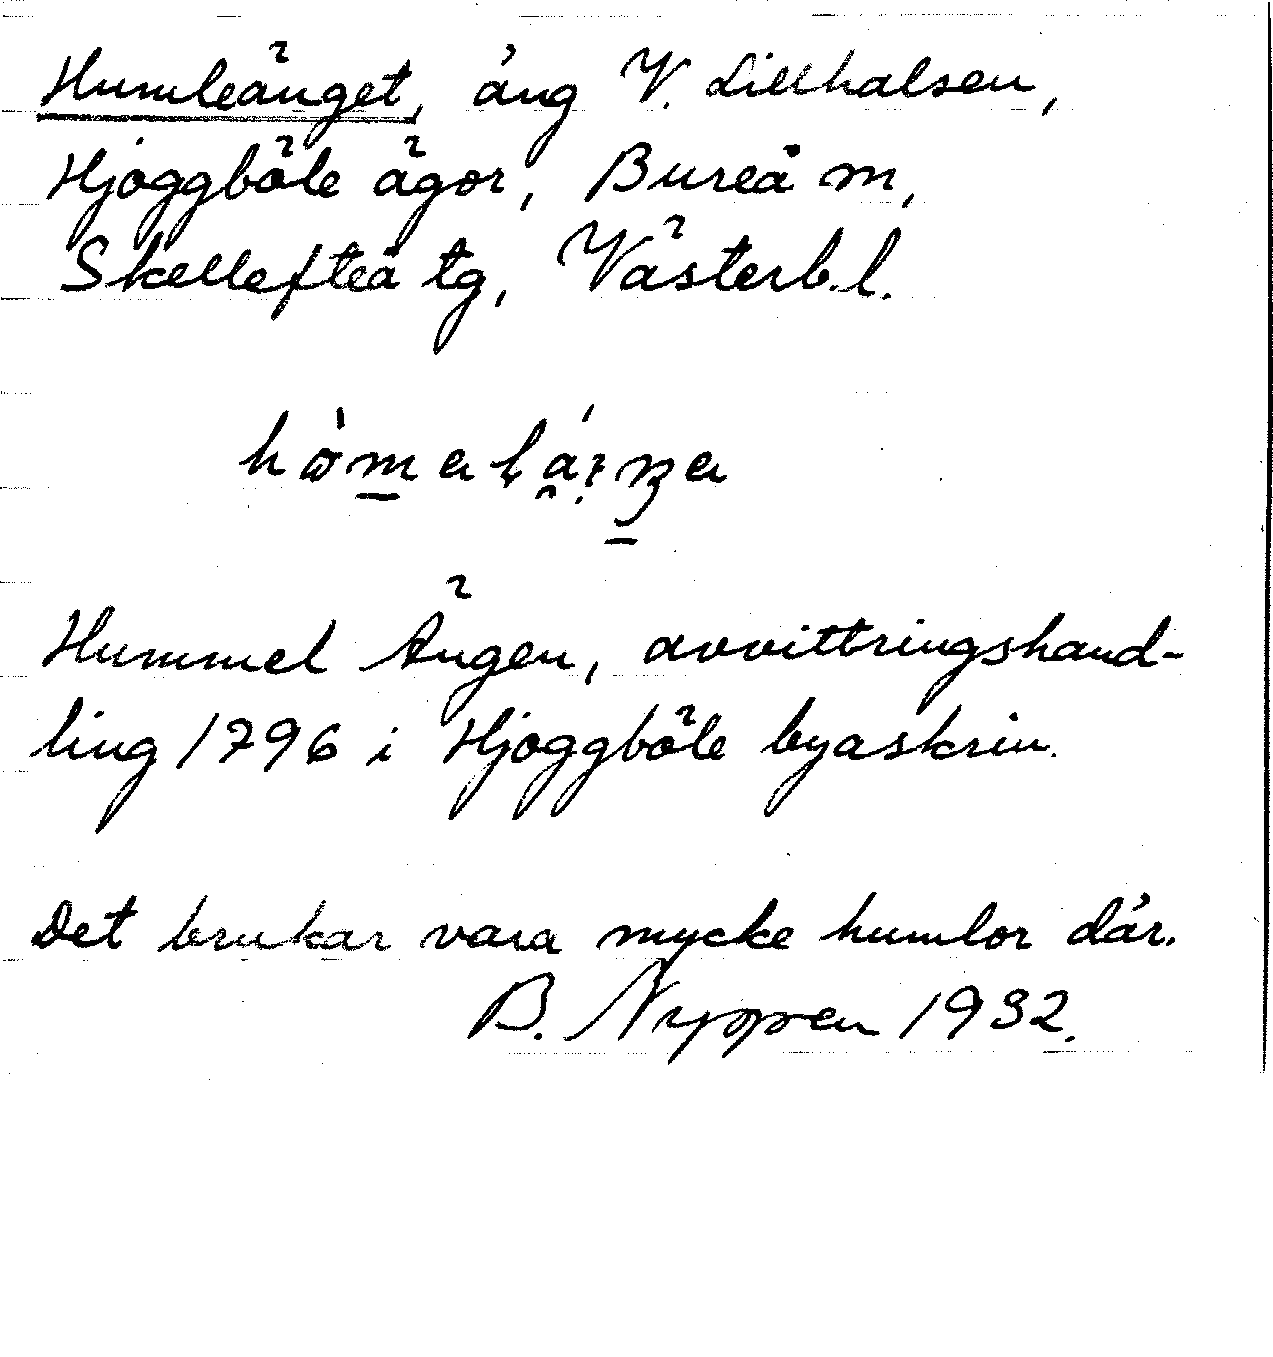 Humleänget, äng V. Lillhalsen,
Hjoggböle ägor, Bureå m,
Skellefteå tg, Västerb.l.
Hummel Ängen, avvittringshand-
ling 1796 i Hjoggböle byaskrin.
Det brukar vara mycke humlor där.
B. Nyppen 1932.